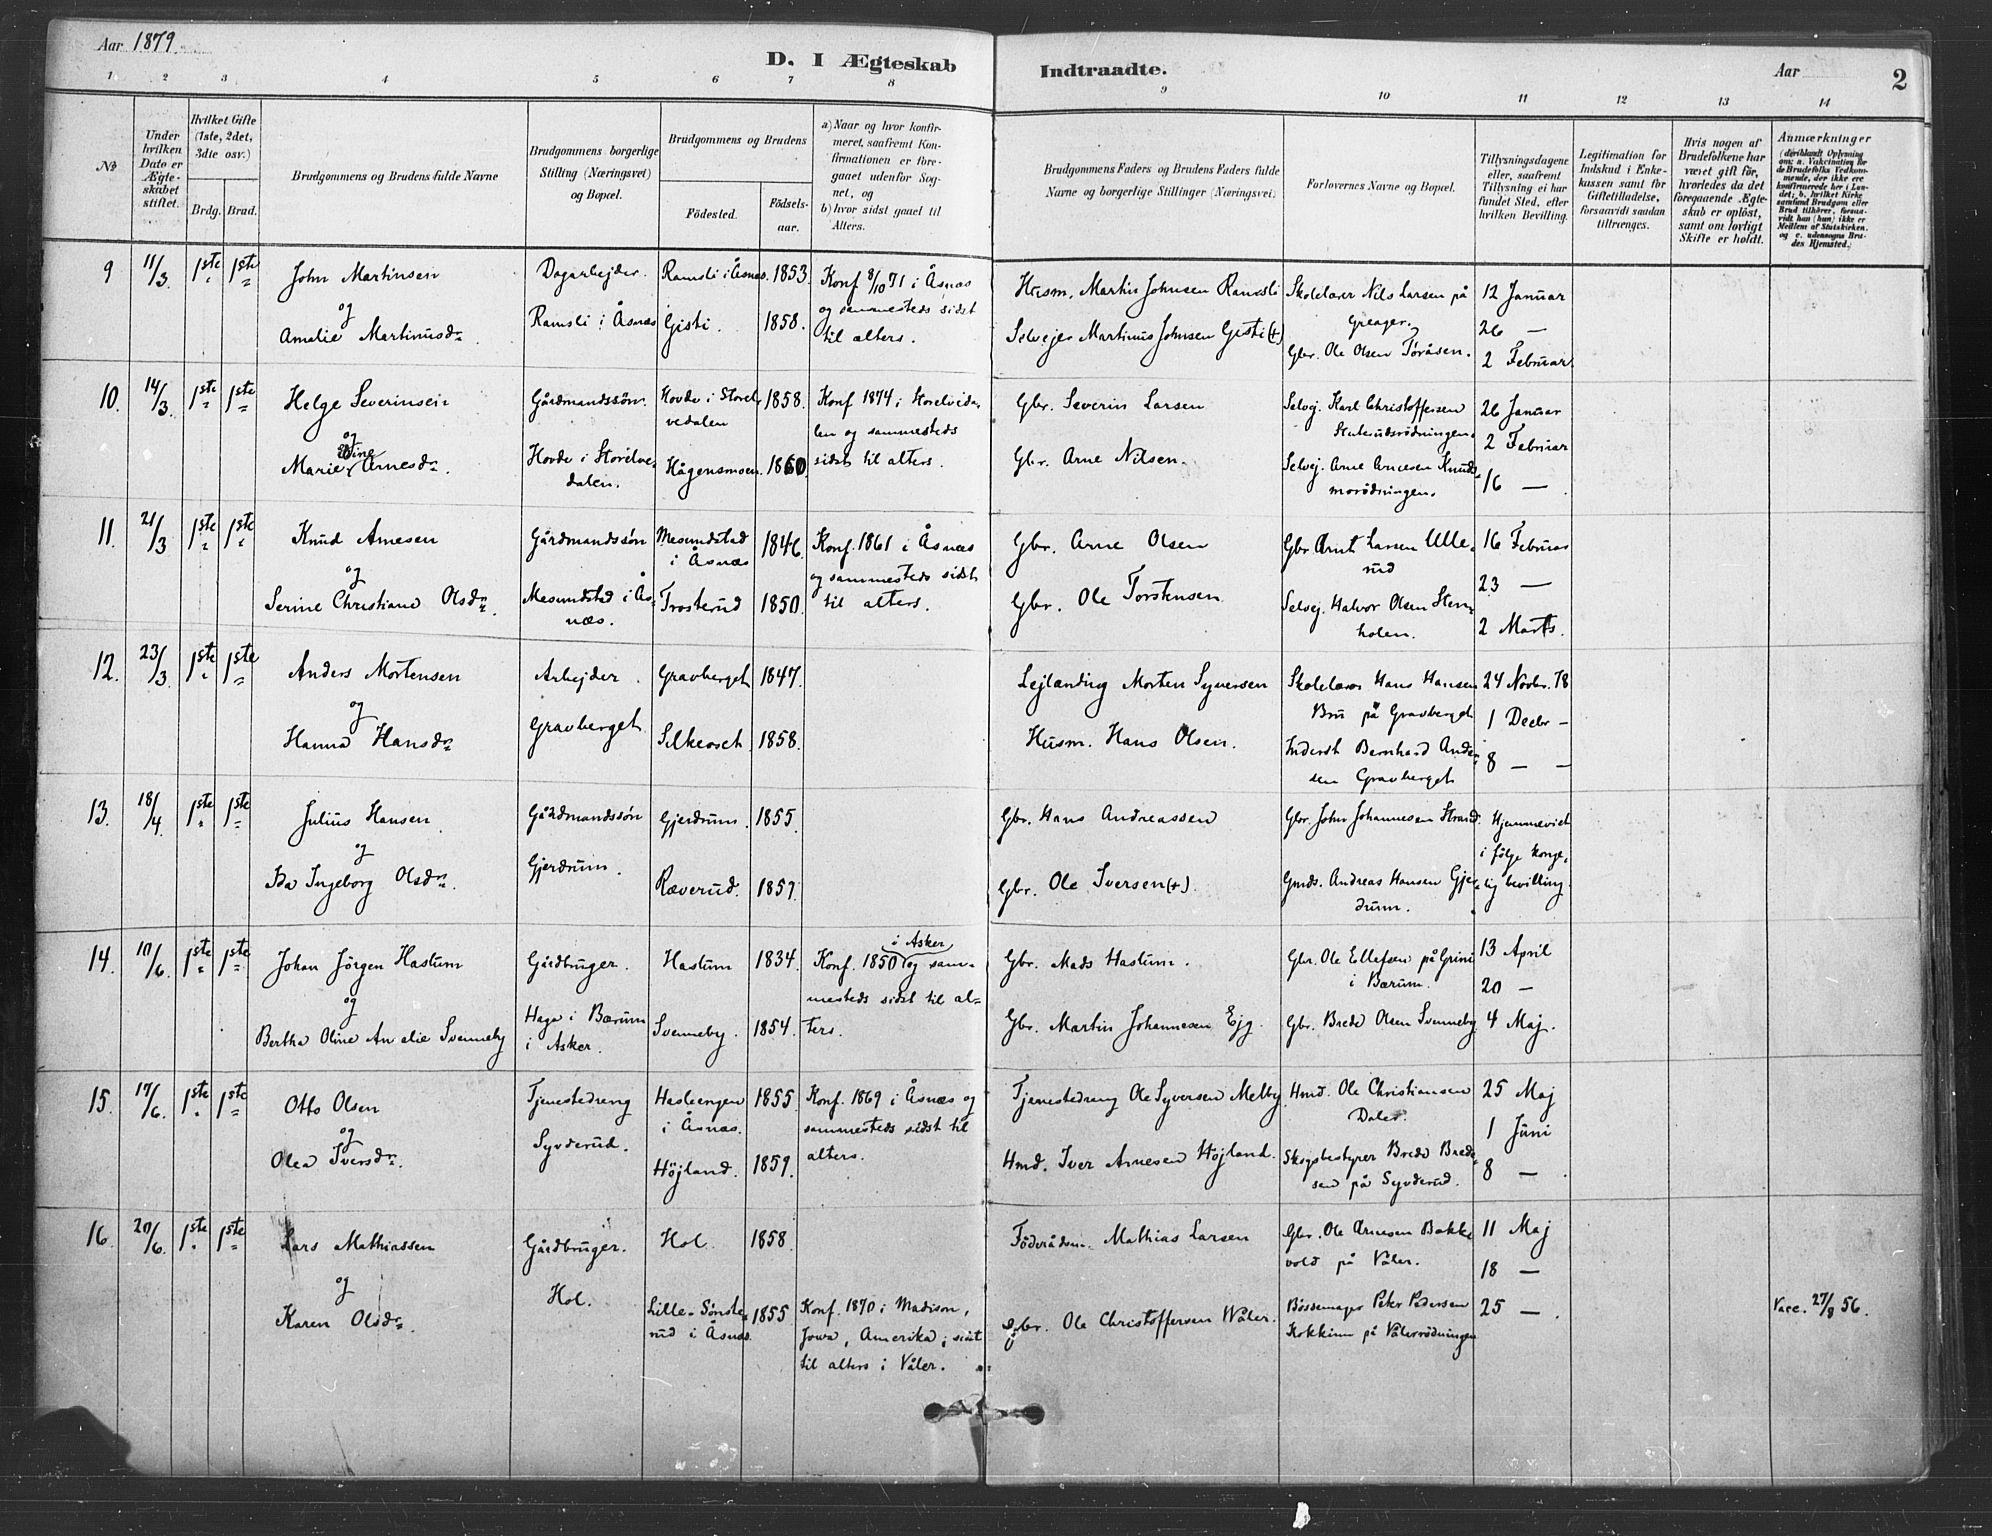 Aar 1879.
D. I Ægteskab Indtraadte.
Aar
2
1 2 3 4 5 6 7 8 9 10 11 12 13 14
No
Under hvilken Dato er Ægteskabet stiftet.
Hvilket Gifte (1ste, 2det, 3die osv.)
Brdg. Brud.
Brudgommens og Brudens fulde Navne
Brudgommens borgerlige Stilling (Næringsvei) og Bopæl.
Brudgommens og Brudens
Fødested.
Fødselsaar.
a) Naar og hvor konfirmeret, saafremt Konfirmationen er foregaaet udenfor Sognet, og
b) hvor sidst gaaet til Alters.
Brudgommens Faders og Brudens Faders fulde Navne og borgerlige Stillinger (Næringsvei).
Forlovernes Navne og Bopæl.
Tillysningsdagene eller, saafremt Tillysning ei har fundet Sted, efter hvilken Bevilling.
Legitimation for Indskud i Enkekassen samt for Giftetilladelse, forsaavidt saadan tiltrænges.
Hvis nogen af Brudefolkene har været gift før, hvorledes da det foregaaende Ægteskab er opløst, samt om lovligt Skifte er holdt.
Anmærkninger (deriblandt Oplysning om: a. Vakcination for de Brudefolks Vedkommende, der ikke ere konfirmerede her i Landet; b. hvilket Kirkesamfund Brudgom eller Brud tilhører, forsaavidt han (hun) ikke er Medlem af Statskirken, og c. udensogns Brudes Hjemsted.)
9 11/3 1ste 1ste
John Martinsen
og
Amalie Martinusdr.
Dagarbejder.
Ramsli i Åsnæs
Ramsli i Åsnæs. 1853
Gisti. 1858.
Konf 8/10 71 i Åsnæs
og sammesteds sidst
til alters.
Husm. Martin Johnsen Ramsli
Selvejer Martinus Johnsen Gisti (+)
Skolelærer Nils Larsen på
Greager.
Gbr. Ole Olsen Toråsen.
12 Januar
26 —
2 Februar
10. 14/3. 1ste 1ste
Helge Severinsen
og
Marie Oline Arnesdr.
Gårdmandssøn.
Hovde i Storelve-
dalen.
Hovde i Storel-
vedalen 1858.
Hågensmoen. 1860.
Konf 1874 i Storelvda-
len og sammesteds
sidst til alters.
Gbr. Severin Larsen
Gbr. Arne Nilsen.
Selvej. Karl Christoffersen
Selvej. Arne Arnesen Knuds-
morødningen.
26 Januar
2 Februar
16 —
11. 21/3 1ste 1ste
Knud Arnesen
og
Serine Christiane Olsdr.
Gårdmandssøn
Mesundstad i Ås-
næs.
Mesundstad
i Åsnæs 1846
Trosterud 1850.
Konf. 1861 i Åsnæs
og sammesteds sidst
til alters.
Gbr. Arne Olsen
Gbr. Ole Torstensen
Gbr Arnt Larsen Ulle-
rud
Selvej. Halvor Olsen Sten-
holen.
16 Februar
23 —
2 Marts.
12. 23/3. 1ste 1ste
Anders Mortensen
og
Hanna Hansdr.
Arbejder.
Gravberget
Gravberget 1847.
Silkeoset 1858.
Lejlænding Morten Syversen
Husm. Hans Olsen.
Skolelærer Hans Hansen
Bru på Gravberget
Inderst Bernhard Ander-
sen Gravberget
24 Novbr. 78
1 Decbr —
8 — —
13. 18/4. 1ste 1ste
Julius Hansen
og
Ida Ingeborg Olsdr.
Gårdmandssøn
Gjerdrum.
Gjerdrum. 1855.
Ræverud. 1857.
Gbr. Hans Andreassen
Gbr. Ole Iversen (+).
Gbr. John Johannesen Strand.
Gmds. Andreas Hansen Gjer-
drum.
Hjemmeviet
i følge konge-
lig bevilling.
14. 10/6. 1ste 1ste
Johan Jörgen Hastum
og
Bertha Oline Amalie Svenneby
Gårdbruger.
Haga i Bærum
i Asker.
Hastum 1834
Svenneby. 1854.
Konf. 1850 i Asker og sam-
mesteds sidst til al-
ters.
Gbr. Mads Hastum.
Gbr. Martin Johannesen Ejg.
Gbr. Ole Ellefsen på Grini
i Bærum.
Gbr. Brede Olsen Svenneby
13 April
20 —
4 Maj.
15. 17/6. 1ste 1ste
Otto Olsen
og
Olea Iversdr.
Tjenestedreng
Syvderud.
Hasleengen
i Åsnæs. 1855.
Höjland. 1859.
Konf. 1869 i Åsnæs og
sammesteds sidst til
alters.
Tjenestedreng Ole Syversen Melby
Hmd. Iver Arnesen Höjland.
Hmd. Ole Christiansen
Dalen.
Skogbestyrer Brede Brede-
sen på Syvderud.
25 Maj
1 Juni
8 —
16. 20/6. 1ste 1ste
Lars Mathiassen
og
Karen Olsdr.
Gårdbruger.
Hol.
Hol. 1858.
Lille-Sönste-
rud i Åsnæs. 1855
Konf. 1870 i Madison,
Iowa, Amerika; sidst
til alters i Våler.
Föderådsm. Mathias Larsen
Gbr. Ole Christoffersen Våler.
Gbr. Ole Arnesen Bakke-
vold på Våler.
Bössemager Peter Pedersen
Kokkim på Vålerrödningen
11 Maj
18 —
25 —
Vacc. 27/8 56.